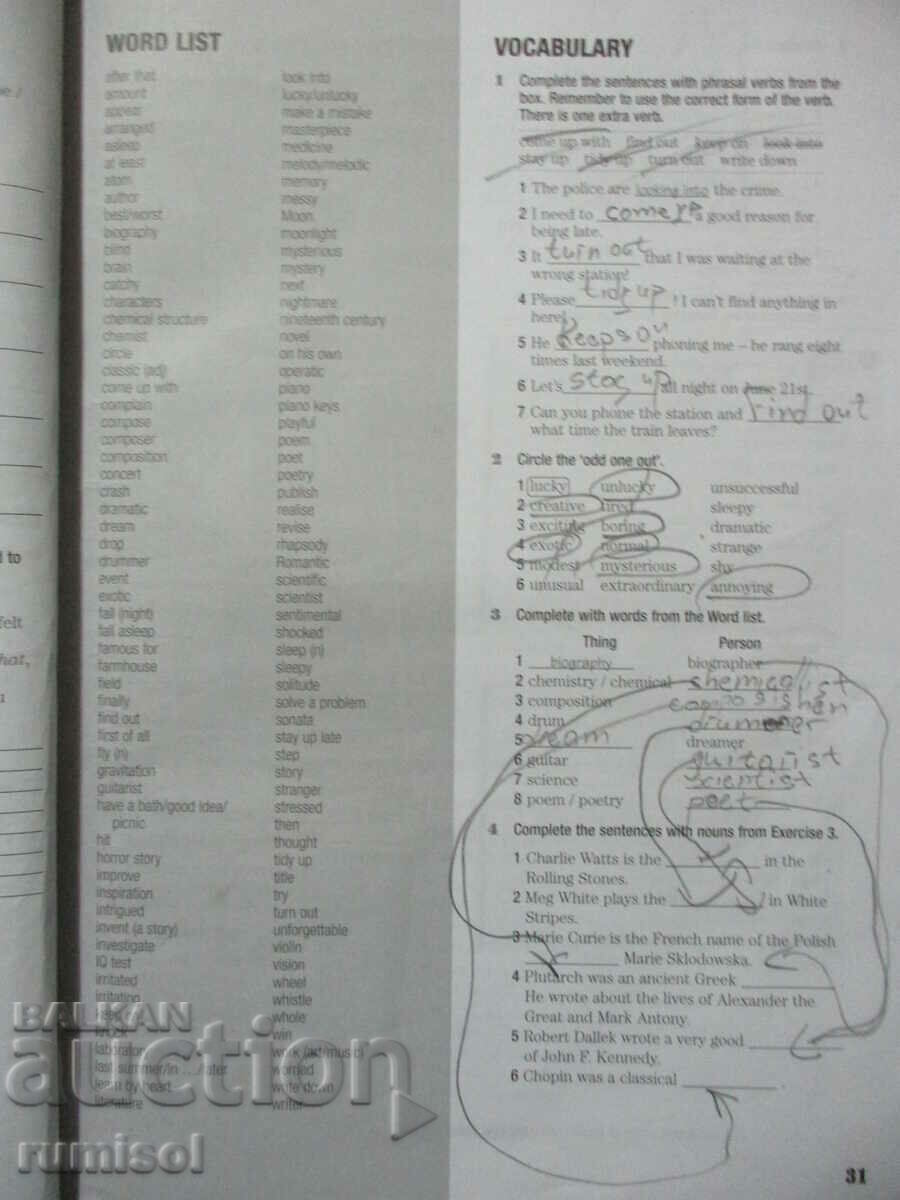 WORD LIST
after that
amount
appear
arranged
asleep
at least
atom
author
best/worst
biography
blind
brain
catchy
characters
chemical structure
chemist
circle
classic (adj)
come up with
complain
compose
composer
composition
concert
crash
dramatic
dream
drop
drummer
event
exotic
fall (night)
fall asleep
famous for
farmhouse
field
finally
find out
first of all
fly (n)
gravitation
guitarist
have a bath/good idea/
picnic
hit
horror story
improve
inspiration
intrigued
invent (a story)
investigate
IQ test
irritated
irritating
keep on
knock
laboratory
last summer/in .../later
learn by heart
literature
look into
lucky/unlucky
make a mistake
masterpiece
medicine
melody/melodic
memory
messy
Moon
moonlight
mysterious
mystery
next
nightmare
nineteenth century
novel
on his own
operatic
piano
piano keys
playful
poem
poet
poetry
publish
realise
revise
rhapsody
Romantic
scientific
scientist
sentimental
shocked
sleep (n)
sleepy
solitude
solve a problem
sonata
stay up late
step
story
stranger
stressed
then
thought
tidy up
title
try
turn out
unforgettable
violin
vision
wheel
whistle
whole
win
work (art/music)
worried
write down
writer
VOCABULARY
1 Complete the sentences with phrasal verbs from the
box. Remember to use the correct form of the verb.
There is one extra verb.
come up with find out keep on look into
stay up tidy up turn out write down
1 The police are looking into the crime.
2 I need to come up a good reason for
being late.
3 It tuin out that I was waiting at the
wrong station!
4 Please tidy up ! I can't find anything in
here!
5 He keeps on phoning me – he rang eight
times last weekend.
6 Let's stay up all night on June 21st.
7 Can you phone the station and find out
what time the train leaves?
2 Circle the 'odd one out'.
1 lucky unlucky unsuccessful
2 creative tired sleepy
3 exciting boring dramatic
4 exotic normal strange
5 modest mysterious shy
6 unusual extraordinary annoying
3 Complete with words from the Word list.
Thing Person
1 biography biographer
2 chemistry / chemical
3 composition
4 drum
5 dream dreamer
6 guitar guitarist
7 science scientist
8 poem / poetry poet
4 Complete the sentences with nouns from Exercise 3.
1 Charlie Watts is the in the
Rolling Stones.
2 Meg White plays the in White
Stripes.
3 Marie Curie is the French name of the Polish
Marie Sklodowska.
4 Plutarch was an ancient Greek
He wrote about the lives of Alexander the
Great and Mark Antony.
5 Robert Dallek wrote a very good
of John F. Kennedy.
6 Chopin was a classical
31
BALKAN
auction
rumisol